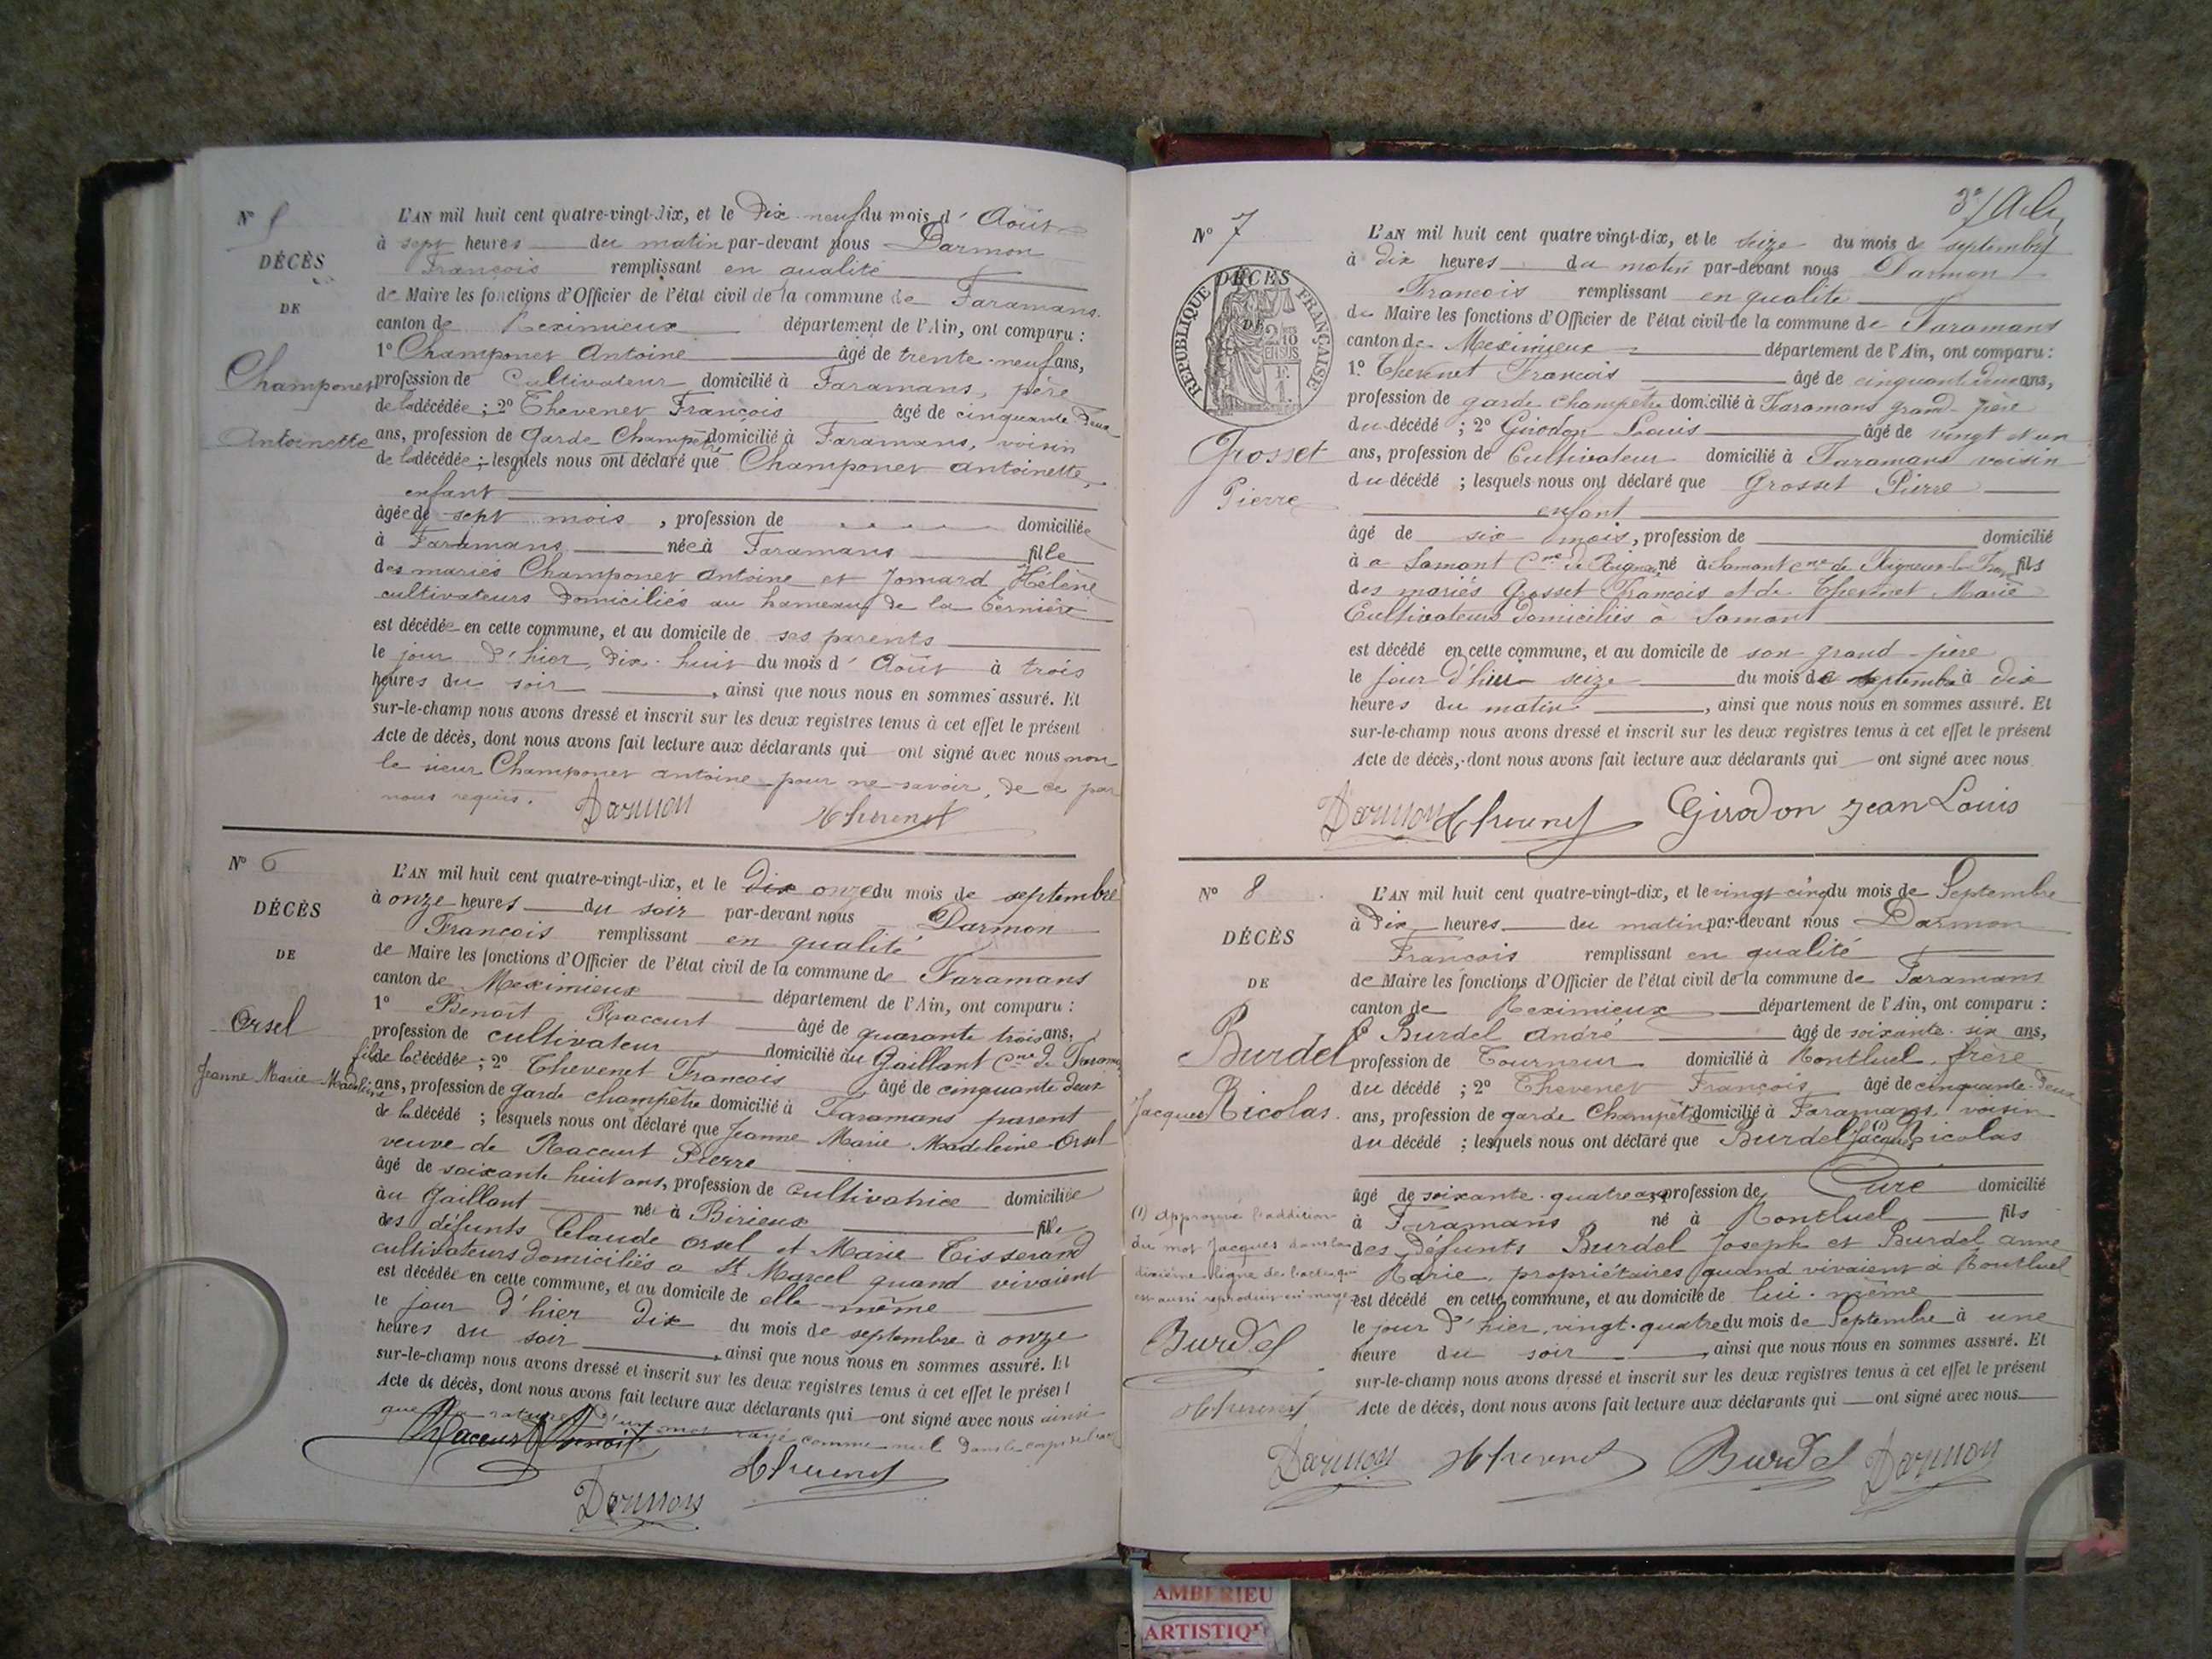 N° 5
DÉCÈS
DE
Champonet
Antoinette
L'AN mil huit cent quatre-vingt-dix, et le dix-neuf du mois d' Août
à sept heures du matin par-devant nous Darmon
François remplissant en qualité
de Maire les fonctions d'Officier de l'état civil de la commune de Faramans
canton de Meximieux département de l'Ain, ont comparu :
1° Champonet Antoine âgé de trente-neuf ans,
profession de Cultivateur domicilié à Faramans, père
de la décédée ; 2° Thevenet François âgé de cinquante deux
ans, profession de Garde Champêtre domicilié à Faramans, voisin
de la décédée ; lesquels nous ont déclaré que Champonet Antoinette,
enfant
âgée de sept mois, profession de domiciliée
à Faramans née à Faramans fille
des mariés Champonet Antoine et Jomard Hélène
cultivateurs domiciliés au hameau de la Bernière
est décédée en cette commune, et au domicile de ses parents
le jour d'hier, dix-huit du mois d' Août à trois
heures du soir, ainsi que nous nous en sommes assuré. Et
sur-le-champ nous avons dressé et inscrit sur les deux registres tenus à cet effet le présent
Acte de décès, dont nous avons fait lecture aux déclarants qui ont signé avec nous non
le sieur Champonet Antoine pour ne savoir, de ce par
nous requis.
Darmon Thevenet
N° 6
DÉCÈS
DE
Orsel
Jeanne Marie Madeleine
L'AN mil huit cent quatre-vingt-dix, et le dix onze du mois de septembre
à onze heures du soir par-devant nous Darmon
François remplissant en qualité
de Maire les fonctions d'Officier de l'état civil de la commune de Faramans
canton de Meximieux département de l'Ain, ont comparu :
1° Benoît Raccurt âgé de quarante trois ans,
profession de cultivateur domicilié au Gaillant Cne de Faramans
fils de la décédée ; 2° Thevenet François âgé de cinquante deux
ans, profession de garde champêtre domicilié à Faramans parent
de la décédé ; lesquels nous ont déclaré que Jeanne Marie Madeleine Orsel
veuve de Raccurt Pierre
âgé de soixante huit ans, profession de cultivatrice domiciliée
au Gaillant né à Birieux fille
des défunts Claude Orsel et Marie Tisserand
cultivateurs domiciliés a St Marcel quand vivaient
est décédée en cette commune, et au domicile de elle-même
le jour d'hier dix du mois de septembre à onze
heures du soir, ainsi que nous nous en sommes assuré. Et
sur-le-champ nous avons dressé et inscrit sur les deux registres tenus à cet effet le présent
Acte de décès, dont nous avons fait lecture aux déclarants qui ont signé avec nous ainsi
que la rature d'un mot rayé comme nul dans le corps de l'acte
Raccurt Benoit Thevenet
Darmon
N° 7
RÉPUBLIQUE FRANÇAISE
DÉCÈS
DE
2/10 EN SUS
F. 1.
Grosset
Pierre
L'AN mil huit cent quatre vingt-dix, et le seize du mois de septembre
à dix heures du matin par-devant nous Darmon
François remplissant en qualité
de Maire les fonctions d'Officier de l'état civil de la commune de Faramans
canton de Meximieux département de l'Ain, ont comparu :
1° Thevenet François âgé de cinquante deux ans,
profession de garde champêtre domicilié à Faramans grand-père
du décédé ; 2° Girodon Louis âgé de vingt et un
ans, profession de Cultivateur domicilié à Faramans voisin
du décédé ; lesquels nous ont déclaré que Grosset Pierre
enfant
âgé de six mois, profession de domicilié
à a Samont Cne de né à Samont Cne de fils
des mariés Grosset François et de Thevenet Marie
Cultivateurs domiciliés à Samont
est décédé en cette commune, et au domicile de son grand-père
le jour d'hier seize du mois de septembre à dix
heures du matin, ainsi que nous nous en sommes assuré. Et
sur-le-champ nous avons dressé et inscrit sur les deux registres tenus à cet effet le présent
Acte de décès, dont nous avons fait lecture aux déclarants qui ont signé avec nous
Darmon Thevenet Girodon Jean Louis
N° 8
DÉCÈS
DE
Burdel
Jacques Nicolas
L'AN mil huit cent quatre-vingt-dix, et le vingt-cinq du mois de Septembre
à Dix heures du matin par-devant nous Darmon
François remplissant en qualité
de Maire les fonctions d'Officier de l'état civil de la commune de Faramans
canton de Meximieux département de l'Ain, ont comparu :
1° Burdel André âgé de soixante-six ans,
profession de Tourneur domicilié à Montluel, frère
du décédé ; 2° Thevenet François âgé de cinquante-deux
ans, profession de garde Champêtre domicilié à Faramans, voisin
du décédé ; lesquels nous ont déclaré que Burdel Jacques (1) Nicolas
âgé de soixante-quatre ans, profession de Curé domicilié
à Faramans né à Montluel fils
des défunts Burdel Joseph et Burdel Anne
Marie, propriétaires quand vivaient à Montluel
est décédé en cette commune, et au domicile de lui-même
le jour d'hier, vingt-quatre du mois de Septembre à une
heure du soir, ainsi que nous nous en sommes assuré. Et
sur-le-champ nous avons dressé et inscrit sur les deux registres tenus à cet effet le présent
Acte de décès, dont nous avons fait lecture aux déclarants qui ont signé avec nous
(1) Approuvé l'addition
du mot Jacques dans la
dixième ligne de l'acte, qui
est aussi reproduit en marge
Burdel
Thevenet
Darmon Thevenet Burdel Darmon
AMBERIEU
ARTISTIQU